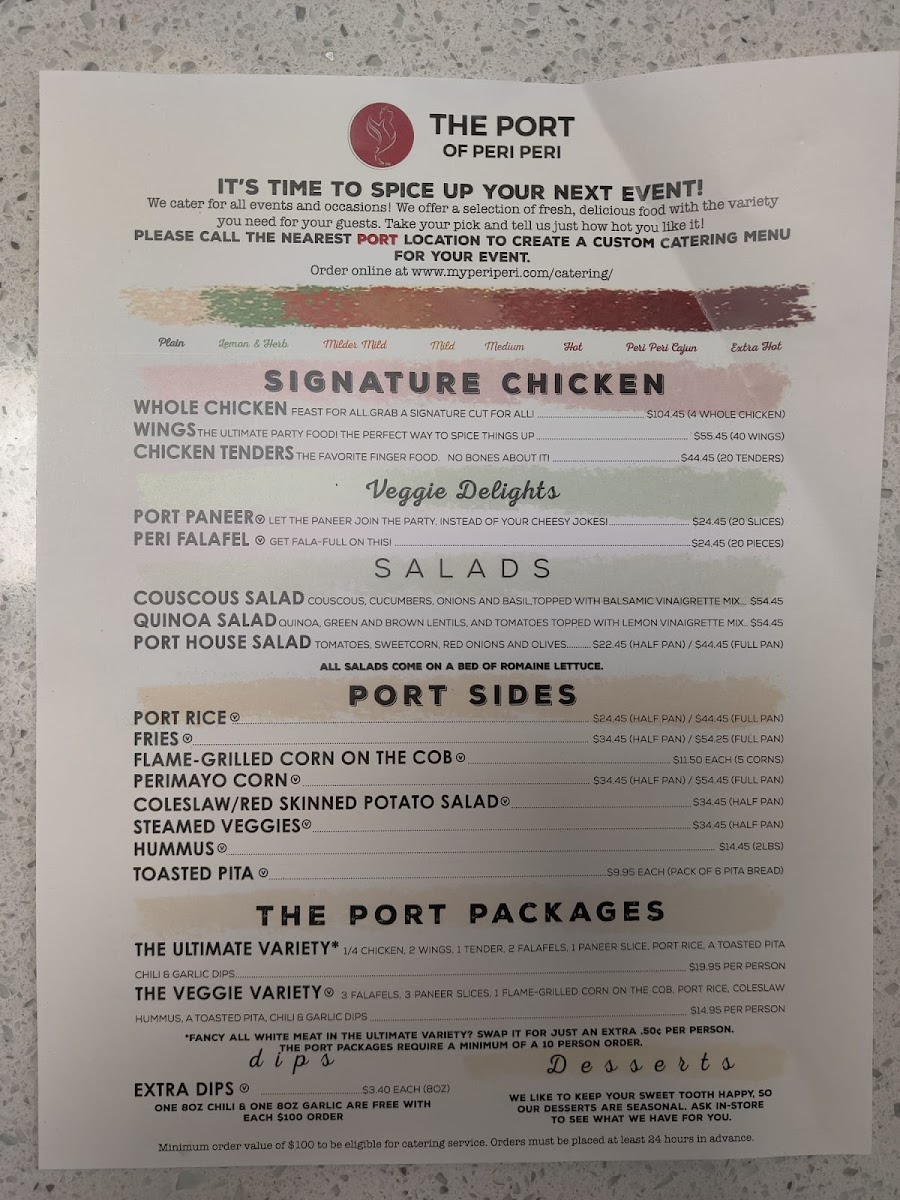 THE PORT
OF PERI PERI
IT'S TIME TO SPICE UP YOUR NEXT EVENT!
We cater for all events and occasions! We offer a selection of fresh, delicious food with the variety
you need for your guests. Take your pick and tell us just how hot you like it!
PLEASE CALL THE NEAREST PORT LOCATION TO CREATE A CUSTOM CATERING MENU
FOR YOUR EVENT.
Order online at www.myperiperi.com/catering/
Plain Lemon & Herb Milder Mild Mild Medium Hot Peri Peri Cajun Extra Hot
SIGNATURE CHICKEN
WHOLE CHICKEN FEAST FOR ALL.GRAB A SIGNATURE CUT FOR ALL! $104.45 (4 WHOLE CHICKEN)
WINGS THE ULTIMATE PARTY FOOD! THE PERFECT WAY TO SPICE THINGS UP $55.45 (40 WINGS)
CHICKEN TENDERS THE FAVORITE FINGER FOOD. NO BONES ABOUT IT! $44.45 (20 TENDERS)
Veggie Delights
PORT PANEER Ⓥ LET THE PANEER JOIN THE PARTY, INSTEAD OF YOUR CHEESY JOKES! $24.45 (20 SLICES)
PERI FALAFEL Ⓥ GET FALA-FULL ON THIS! $24.45 (20 PIECES)
SALADS
COUSCOUS SALAD COUSCOUS, CUCUMBERS, ONIONS AND BASIL,TOPPED WITH BALSAMIC VINAIGRETTE MIX... $54.45
QUINOA SALAD QUINOA, GREEN AND BROWN LENTILS, AND TOMATOES TOPPED WITH LEMON VINAIGRETTE MIX.. $54.45
PORT HOUSE SALAD TOMATOES, SWEETCORN, RED ONIONS AND OLIVES.......... $22.45 (HALF PAN) / $44.45 (FULL PAN)
ALL SALADS COME ON A BED OF ROMAINE LETTUCE.
PORT SIDES
PORT RICE Ⓥ $24.45 (HALF PAN) / $44.45 (FULL PAN)
FRIES Ⓥ $34.45 (HALF PAN) / $54.25 (FULL PAN)
FLAME-GRILLED CORN ON THE COB Ⓥ $11.50 EACH (5 CORNS)
PERIMAYO CORN Ⓥ $34.45 (HALF PAN) / $54.45 (FULL PAN)
COLESLAW/RED SKINNED POTATO SALAD Ⓥ $34.45 (HALF PAN)
STEAMED VEGGIES Ⓥ $34.45 (HALF PAN)
HUMMUS Ⓥ $14.45 (2LBS)
TOASTED PITA Ⓥ $9.95 EACH (PACK OF 6 PITA BREAD)
THE PORT PACKAGES
THE ULTIMATE VARIETY* 1/4 CHICKEN, 2 WINGS, 1 TENDER, 2 FALAFELS, 1 PANEER SLICE, PORT RICE, A TOASTED PITA
CHILI & GARLIC DIPS $19.95 PER PERSON
THE VEGGIE VARIETY Ⓥ 3 FALAFELS, 3 PANEER SLICES, 1 FLAME-GRILLED CORN ON THE COB, PORT RICE, COLESLAW
HUMMUS, A TOASTED PITA, CHILI & GARLIC DIPS $14.95 PER PERSON
*FANCY ALL WHITE MEAT IN THE ULTIMATE VARIETY? SWAP IT FOR JUST AN EXTRA .50¢ PER PERSON.
THE PORT PACKAGES REQUIRE A MINIMUM OF A 10 PERSON ORDER.
dips
EXTRA DIPS Ⓥ $3.40 EACH (8OZ)
ONE 8OZ CHILI & ONE 8OZ GARLIC ARE FREE WITH
EACH $100 ORDER
Desserts
WE LIKE TO KEEP YOUR SWEET TOOTH HAPPY, SO
OUR DESSERTS ARE SEASONAL. ASK IN-STORE
TO SEE WHAT WE HAVE FOR YOU.
Minimum order value of $100 to be eligible for catering service. Orders must be placed at least 24 hours in advance.